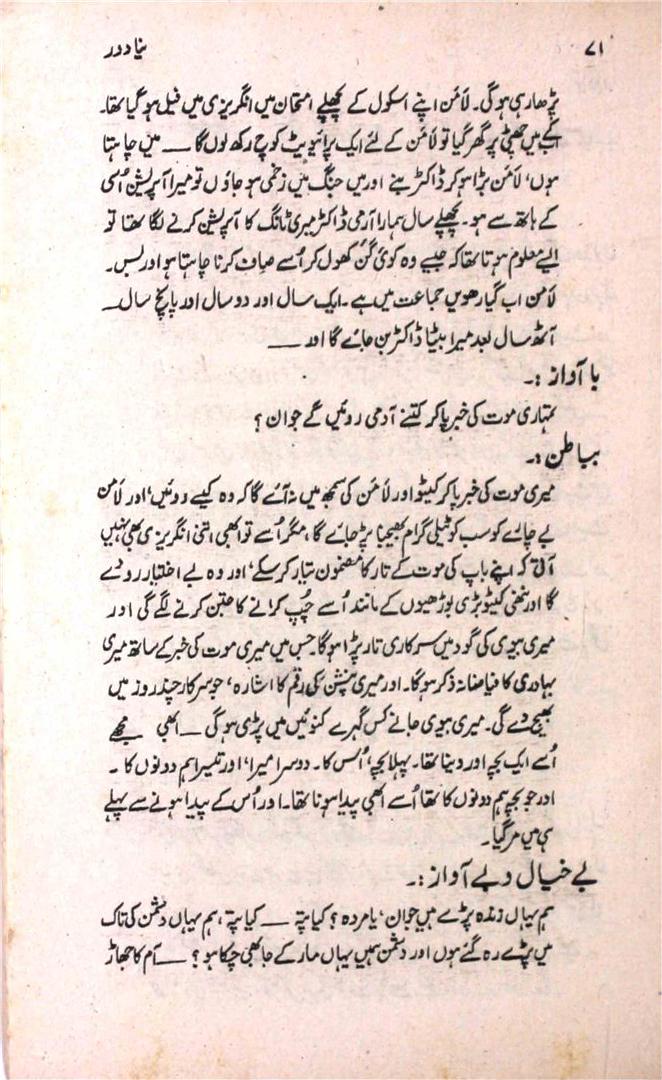 ۷۱ نیا دور
پڑھا رہی ہوگی۔ لامن اپنے اسکول کے پچھلے امتحان میں انگریزی میں فیل ہوگیا تھا۔
اَب کے میں چھٹی پر گھر گیا تو لامن کے لئے ایک پرائیویٹ کوچ رکھ لوں گا ـــ میں چاہتا
ہوں، لامن بڑا ہو کر ڈاکٹر بنے اور میں جنگ میں زخمی ہو جاؤں تو میرا آپریشن اُسی
کے ہاتھ سے ہو۔ پچھلے سال ہمارا آرمی ڈاکٹر میری ٹانگ کا آپریشن کرنے لگا تھا تو
ایسے معلوم ہوتا تھا کہ جیسے وہ کوئی گن کھول کر اُسے صاف کرنا چاہتا ہو اور بس۔
لامن اب گیارھویں جماعت میں ہے۔ ایک سال اور دو سال اور پانچ سال ـــ
آٹھ سال بعد میرا بیٹا ڈاکٹر بن جائے گا اور ـــ
با آواز :۔
تمہاری موت کی خبر پا کر کتنے آدمی روئیں گے جوان ؟
بباطن :۔
میری موت کی خبر پا کر کیٹو اور لامن کی سمجھ میں نہ آئے گا کہ وہ کیسے روئیں، اور لامن
بے چارے کو سب کو ٹیلی گرام بھیجنا پڑ جائے گا، مگر اُسے تو ابھی اتنی انگریزی بھی نہیں
آتی کہ اپنے باپ کی موت کے تار کا مضمون تیار کر سکے، اور وہ بے اختیار رو دے
گا اور ننھی کیٹو بڑی بوڑھیوں کے مانند اُسے چُپ کرانے کا جتن کرنے لگے گی اور
میری بیوی کی گود میں سرکاری تار پڑا ہوگا۔ جس میں میری موت کی خبر کے ساتھ میری
بہادری کا فیاضانہ ذکر ہوگا۔ اور میری پنشن کی رقم کا اشارہ، جو سرکار چند روز میں
بھیج دے گی۔ میری بیوی جانے کس گہرے کنوئیں میں پڑی ہوگی ـــ ابھی مجھے
اُسے ایک بچہ اور دینا تھا۔ پہلا بچہ، اُس کا۔ دوسرا میرا، اور تیسرا ہم دونوں کا۔
اور جو بچہ ہم دونوں کا تھا اُسے ابھی پیدا ہونا تھا۔ اور اُس کے پیدا ہونے سے پہلے
ہی میں مر گیا۔
بے خیال و بے آواز :۔
ہم یہاں زندہ پڑے ہیں جوان، یا مردہ ؟ کیا پتہ ـــ کیا پتہ، ہم یہاں دشمن کی تاک
میں پڑے رہ گئے ہوں اور دشمن ہمیں یہاں مار کے جا بھی چکا ہو ؟ ـــ آم کا جھاڑ